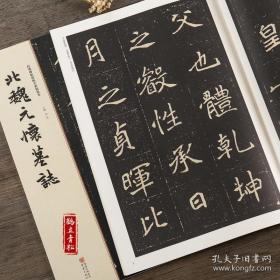 皇
父也體乾坤
之叡性承日
月之貞暉比
北魏元懷墓誌
鶴立青松
孔夫子旧书网